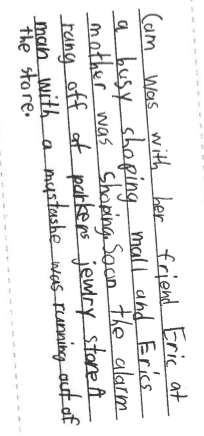 Cam was with her friend Eric at
a busy shoping mall and Erics
mother was shoping. Soon the alarm
rang off at parkers jewlry store A
man with a mustashe was running out of
the store.